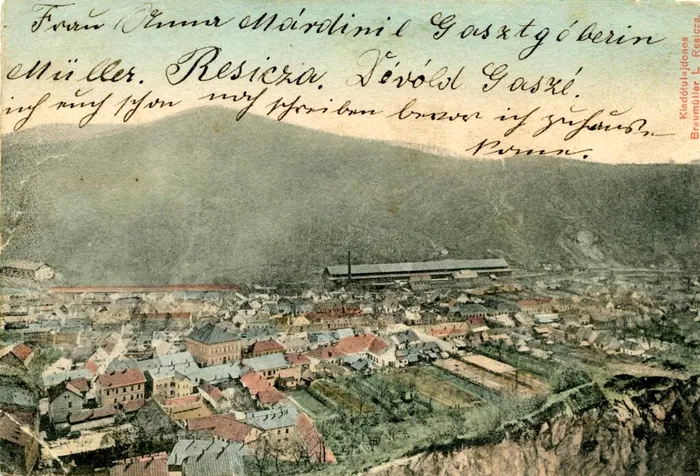 Frau Anna Márdinil Gasztgéberin
Müller. Resicza. Dévóld Gaszé.
ich euch schon noch schreiben bevor ich zuhause
kome.
Kiadótulajdonos
Braumüller L. Resicza